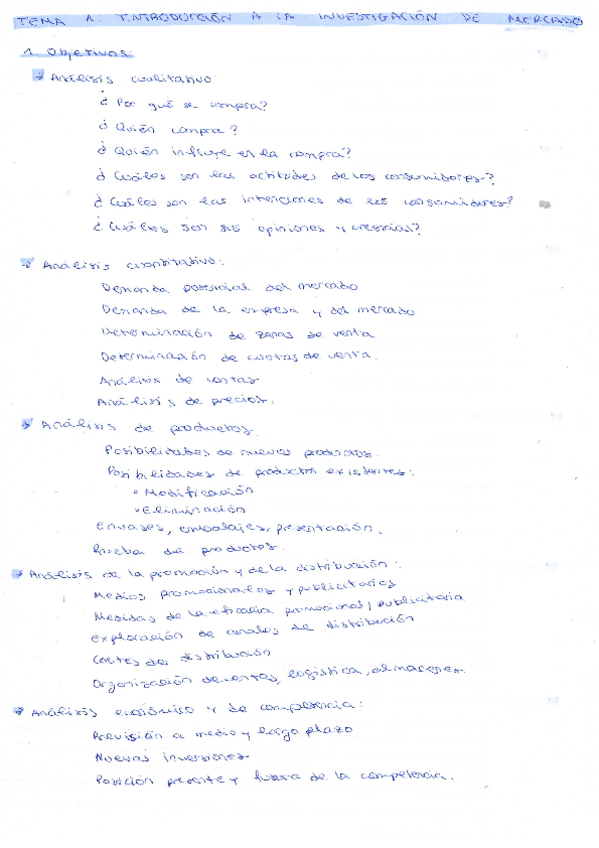 TEMA 1. INTRODUCCIÓN A LA INVESTIGACIÓN DE MERCADO
1. Objetivos:
→ Análisis cualitativo:
¿Por qué se compra?
¿Quién compra?
¿Quién influye en la compra?
¿Cuáles son las actitudes de los consumidores?
¿Cuáles son las intenciones de los consumidores?
¿Cuáles son sus opiniones y creencias?
→ Análisis cuantitativo:
Demanda potencial del mercado
Demanda de la empresa y del mercado
Determinación de zonas de venta
Determinación de cuotas de venta.
Análisis de ventas
Análisis de precios.
→ Análisis de productos.
Posibilidades de nuevos productos.
Posibilidades de productos existentes:
• Modificación
• Eliminación
Envases, embalajes, presentación.
Prueba de productos.
→ Análisis de la promoción y de la distribución:
Medios promocionales y publicitarios
Medidas de la eficacia promocional y publicitaria
exploración de canales de distribución
Costes de distribución
Organización de ventas, logística, almacenes.
→ Análisis económico y de competencia:
Previsión a medio y largo plazo
Nuevas inversiones.
Posición presente y futura de la competencia.